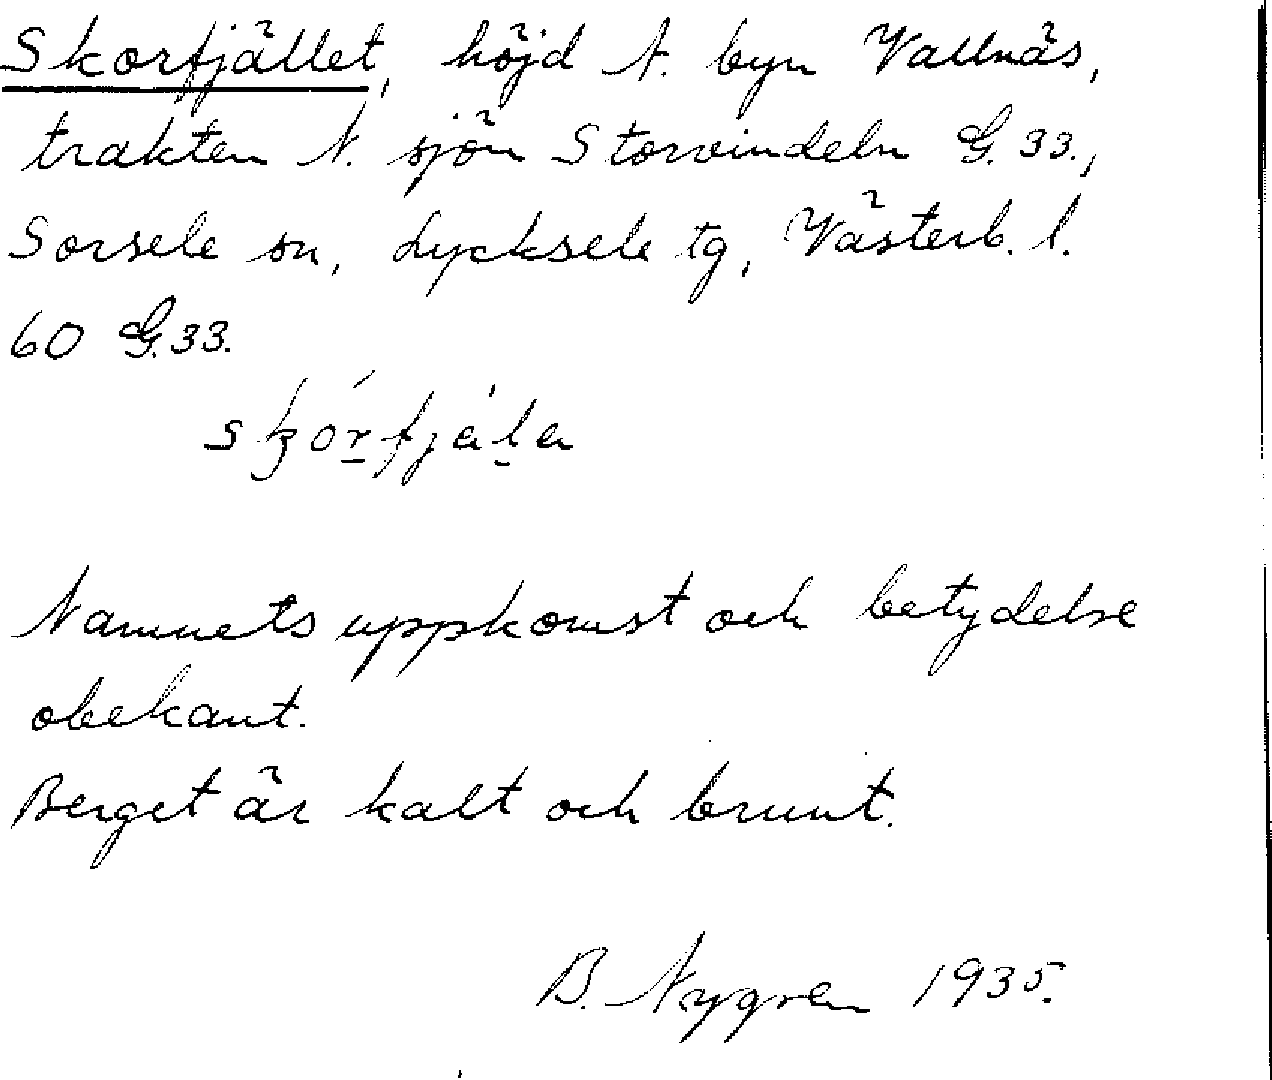 Skorfjället, höjd N. byn Vallnäs,
trakten N. sjön Storvindeln G. 33.,
Sorsele sn, Lycksele tg, Västerb. l.
60 G. 33.
Namnets uppkomst och betydelse
obekant.
Berget är kalt och brunt.
B. Nygren 1935.